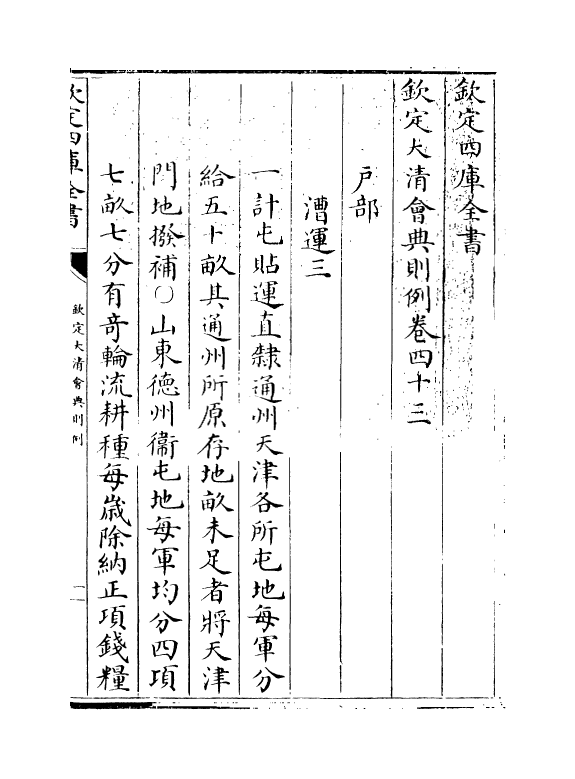 欽定四庫全書
欽定大清會典則例卷四十三
戸部
漕運三
一計屯貼運直隸通州天津各所屯地每軍分
給五十畝其通州所原存地畝未足者將天津
門地撥補○山東德州衞屯地每軍均分四項
七畝七分有竒輪流耕種每歳除納正項錢糧
欽定四庫全書
欽定大清會典則例
一